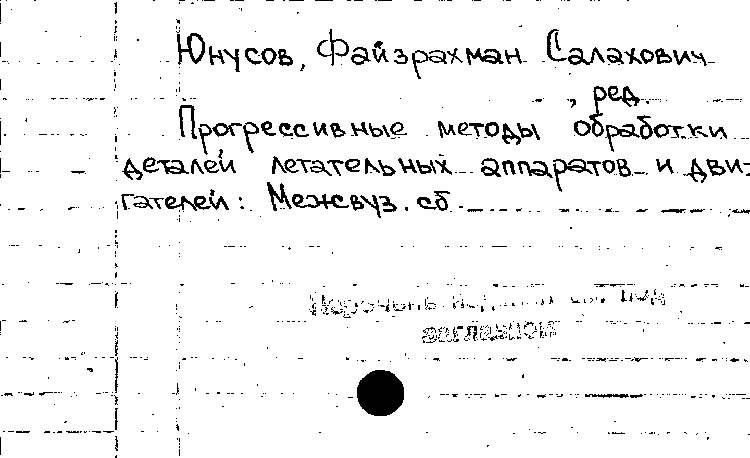 Юнусов, Файзрахман Салахович
, ред.
Прогрессивные методы обработки
деталей летательных аппаратов и дви-
гателей: Межвуз. сб.
заглавием